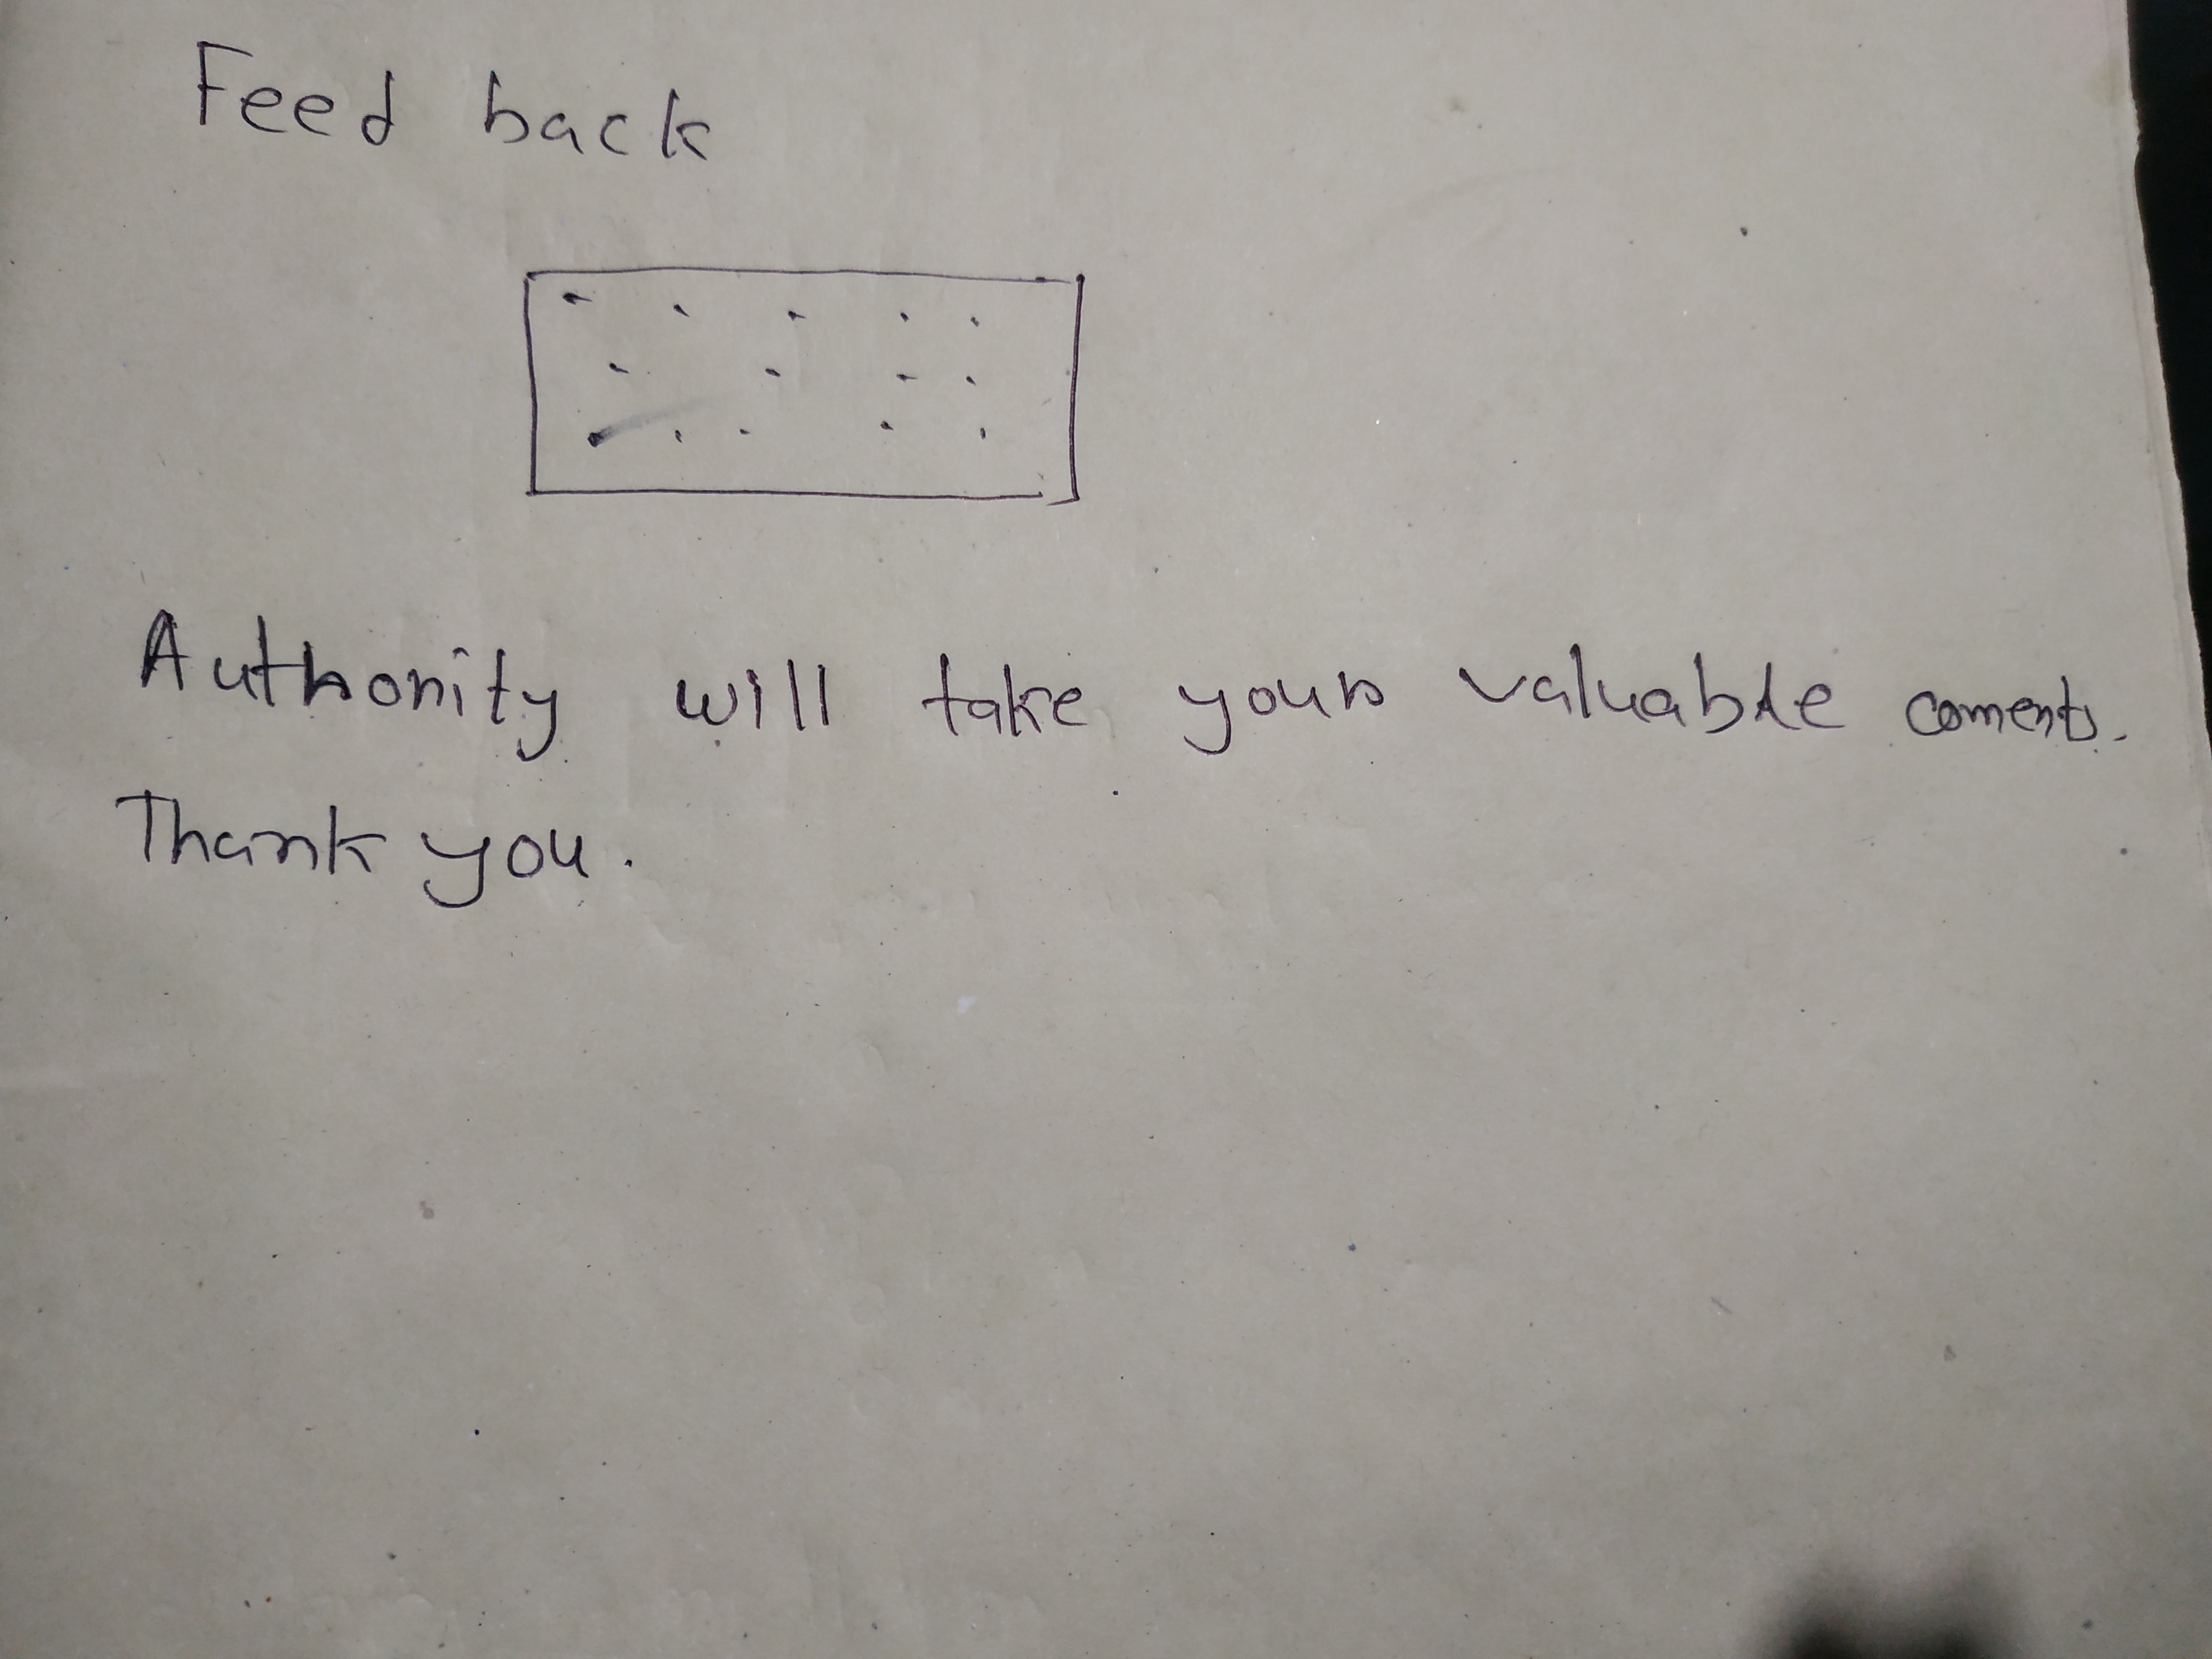 Feed back
Authority will take your valuable coments.
Thank you.